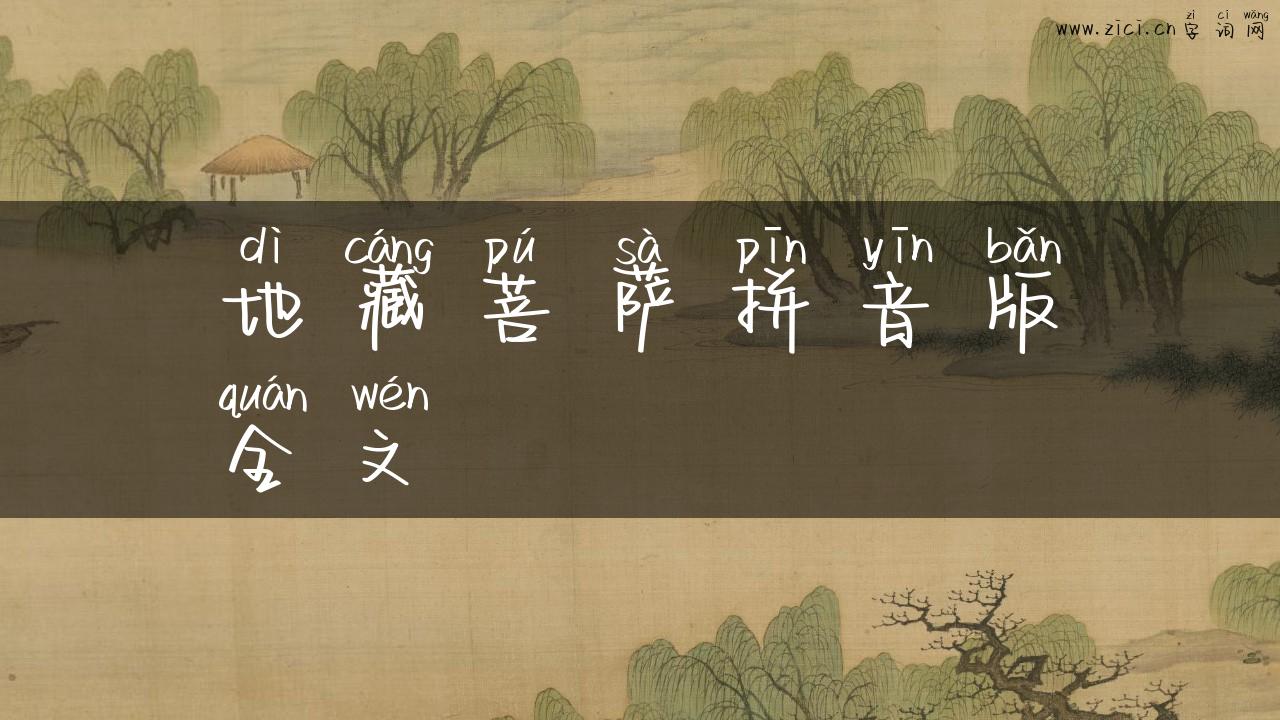 zì cí wǎng
www.zici.cn 字词网
dì cáng pú sà pīn yīn bǎn
地藏菩萨拼音版
quán wén
全文